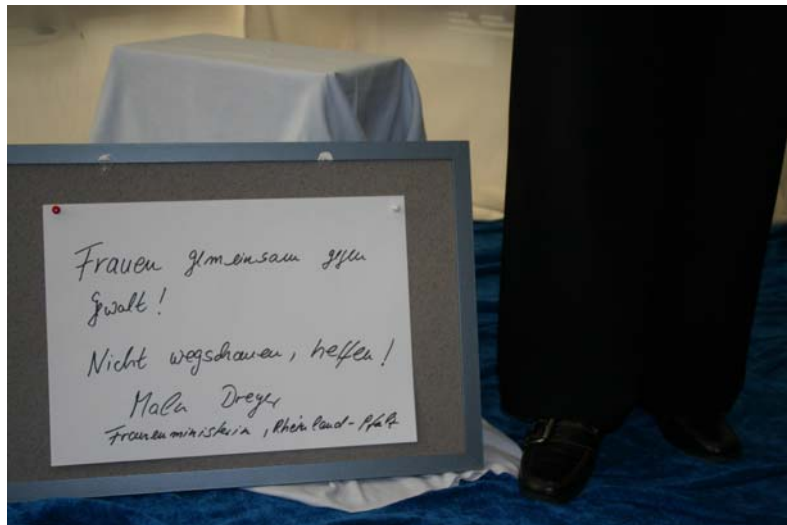 Frauen gemeinsam gegen
Gewalt!
Nicht wegschauen, helfen!
Malu Dreyer
Frauenministerin, Rheinland-Pfalz